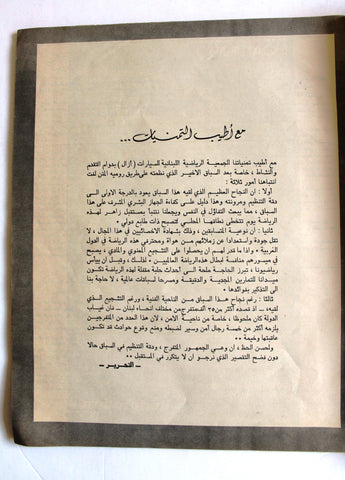 مع أطيب التمنيات ...
مع أطيب تمنياتنا للجمعية الرياضية اللبنانية للسيارات ( أزال ) بدوام التقدم
والنشاط ، خاصة بعد السباق الاخير الذي نظمته على طريق روميه المتن لفت
انتباهنا أمور ثلاثة :
أولا : ان النجاح العظيم الذي لقيه هذا السباق يعود بالدرجة الاولى الى
دقة التنظيم ومرونته وهذا دليل على كفاءة الجهاز البشري المشرف على هذا
السباق ، مما يبعث التفاؤل في النفس ويجعلنا نتنبأ بمستقبل زاهر لهذه
الرياضة يوم تتخطى نطاقها المحلي لتصبح ذات طابع دولي .
ثانيا : أن نوعية المتسابقين ، وذلك بشهادة الاخصائيين في هذا المجال ، لا
تقل جودة واستعدادا عن زملائهم من هواة ومحترفي هذه الرياضة في الدول
الاوروبية . واذا ما قدر لهم ان يحصلوا على التشجيع المعنوي والمادي ، يصبح
مركزهم في مصاف أبطال هذه الرياضة العالميين . لذلك ، وقبل أن ييأس
رياضيونا ، تبرز الحاجة ملحة الى أحداث حلبة مقفلة لهذه الرياضة تكون
ميدانا للتمارين المجدية والدقيقة ومسرحا لسباقات عالمية ، لا حاجة بنا
الى التذكير بفوائدها .
ثالثا : رغم نجاح هذا السباق من الناحية الفنية ، ورغم التشجيع الذي
لقيه ، اذ قصده أكثر من ٢٥ الف متفرج من مختلف أنحاء لبنان ، فان غياب
الدولة كان ملحوظا ، خاصة من ناحية الامن ، لان هذا العدد من المتفرجين
يلزمه أكثر من خمسة رجال أمن وسير لضبطه ومنع وقوع حوادث قد تكون
عاقبتها وخيمة ..
ولحسن الحظ ، ان وعي الجمهور المتفرج ، ودقة التنظيم في السباق حالا
دون فضح التقصير الذي نرجو ان لا يتكرر في المستقبل ..
ـ التحرير ـ